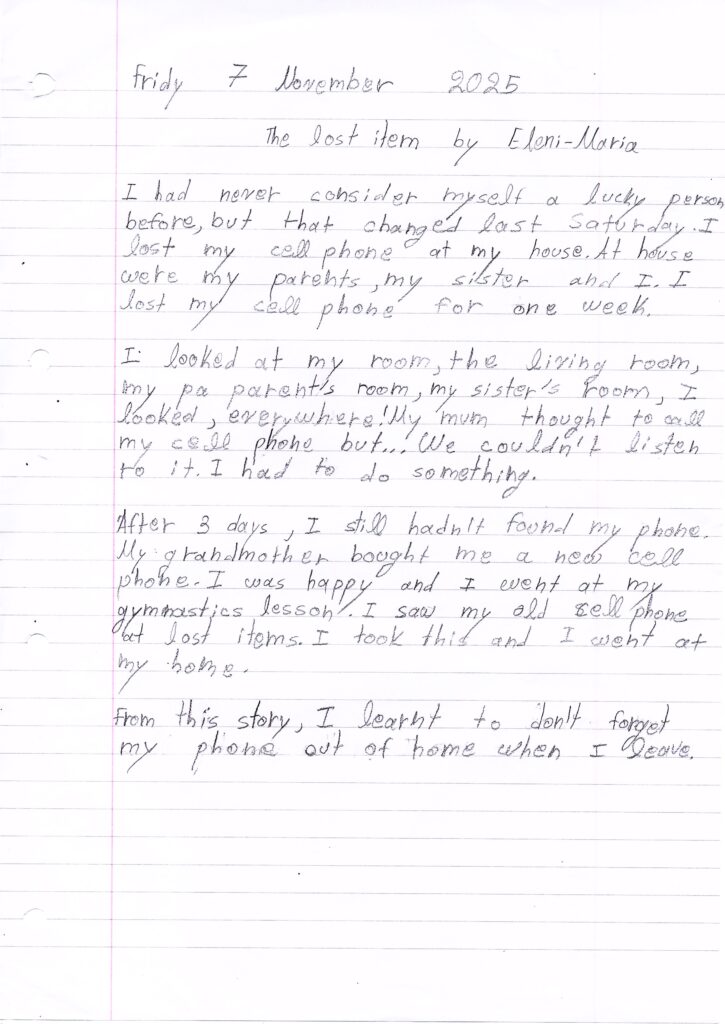 Fridy 7 November 2025
The lost item by Eleni-Maria
I had never consider myself a lucky person
before, but that changed last Saturday. I
lost my cell phone at my house. At house
were my parents, my sister and I. I
lost my cell phone for one week.
I looked at my room, the living room,
my pa parent's room, my sister's room, I
looked, everywhere! My mum thought to call
my cell phone but... We couldn't listen
to it. I had to do something.
After 3 days, I still hadn't found my phone.
My grandmother bought me a new cell
phone. I was happy and I went at my
gymnastics lesson. I saw my old cell phone
at lost items. I took this and I went at
my home.
From this story, I learnt to don't forget
my phone out of home when I leave.